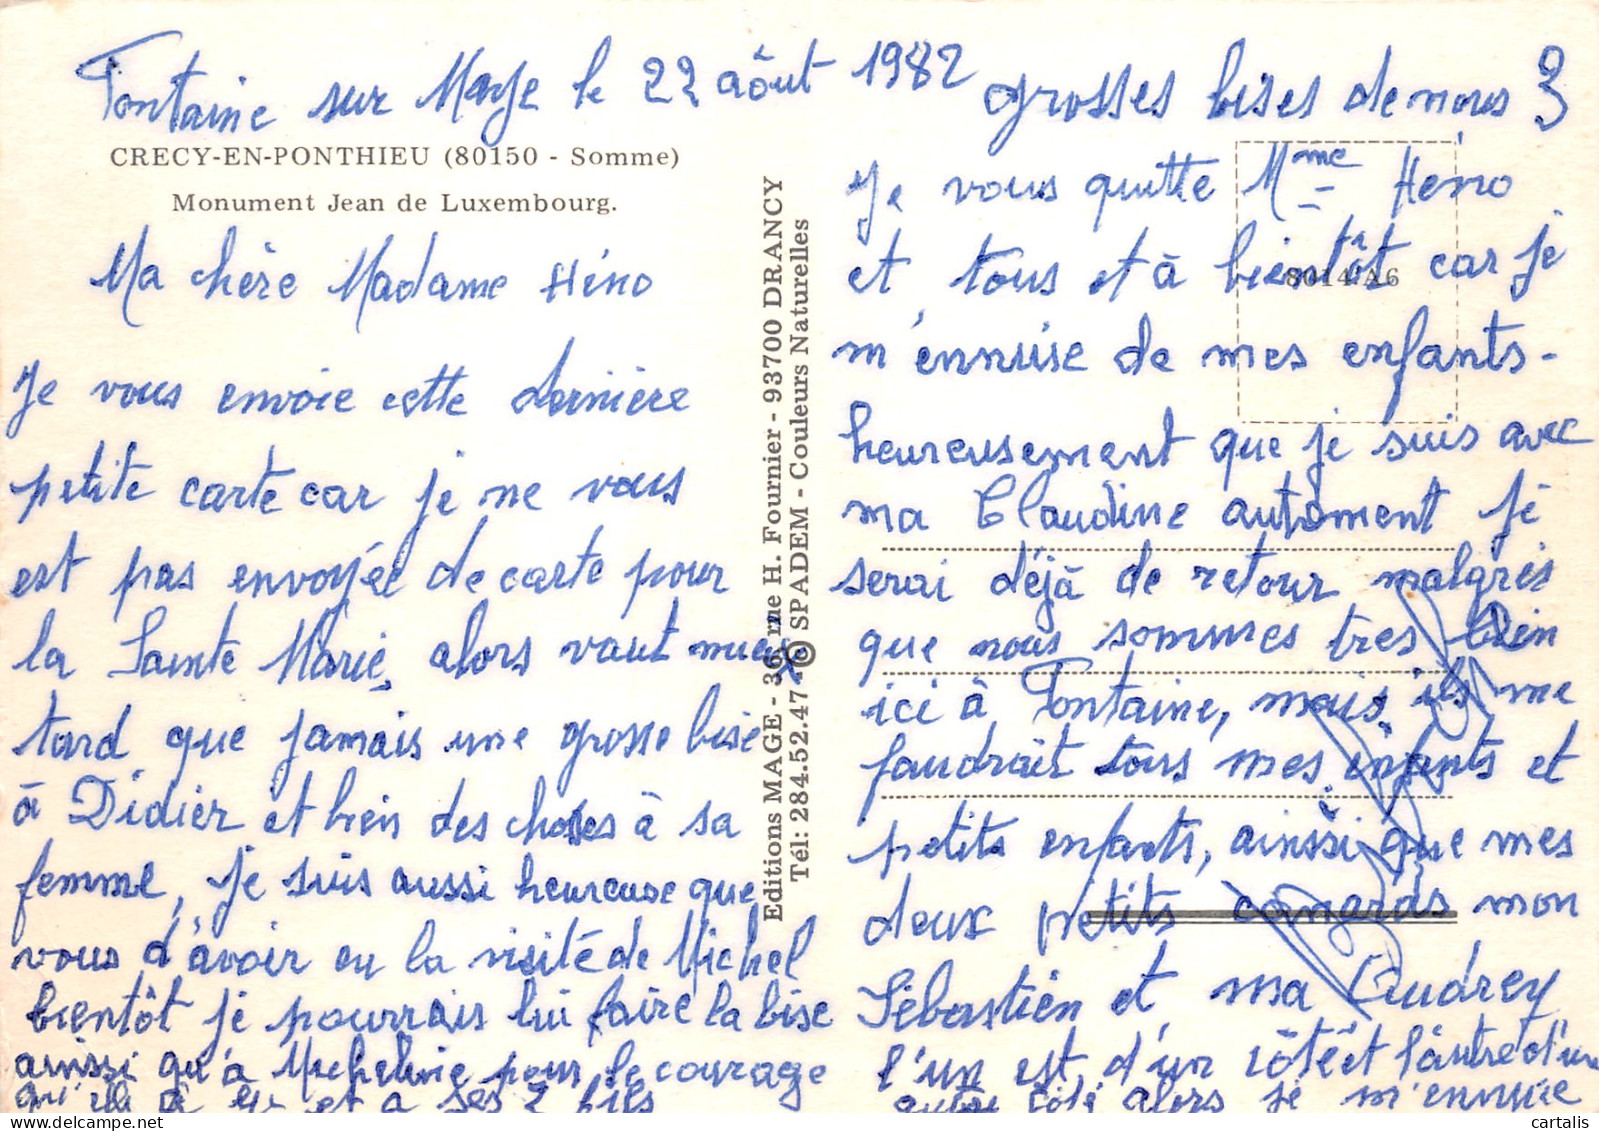 Fontaine sur Maye le 22 aôut 1982
CRECY-EN-PONTHIEU (80150 - Somme)
Monument Jean de Luxembourg.
Ma chère Madame Héno
Je vous envoie cette dernière
petite carte car je ne vous
est pas envoyée de carte pour
la Sainte Marie, alors vaut mieux
tard que jamais une grosse bise
à Didier et bien des choses à sa
femme, je suis aussi heureuse que
vous d'avoir eu la visite de Michel
bientôt je pourrais lui faire la bise
ainssi qu'à Micheline pour le courage
qu'ils à eu et a ses 2 fils
Editions MAGE - 36 rue H. Fournier - 93700 DRANCY
Tél: 284.52.47 - © SPADEM - Couleurs Naturelles
grosses bises de nous 3
Je vous quitte Mme Héno
et tous et à bientôt car je
8014 A6
m'ennuise de mes enfants-
heureusement que je suis avec
ma Claudine automent je
serai déjà de retour malgrés
que nous sommes tres bien
ici à Fontaine, mais ils me
faudrait tous mes enfants et
petits enfants, ainssi que mes
deux petits canards mon
Sébastien et ma Audrey
l'un est d'un côté et l'autre d'un
autre côté alors je m'ennuie
cartalis